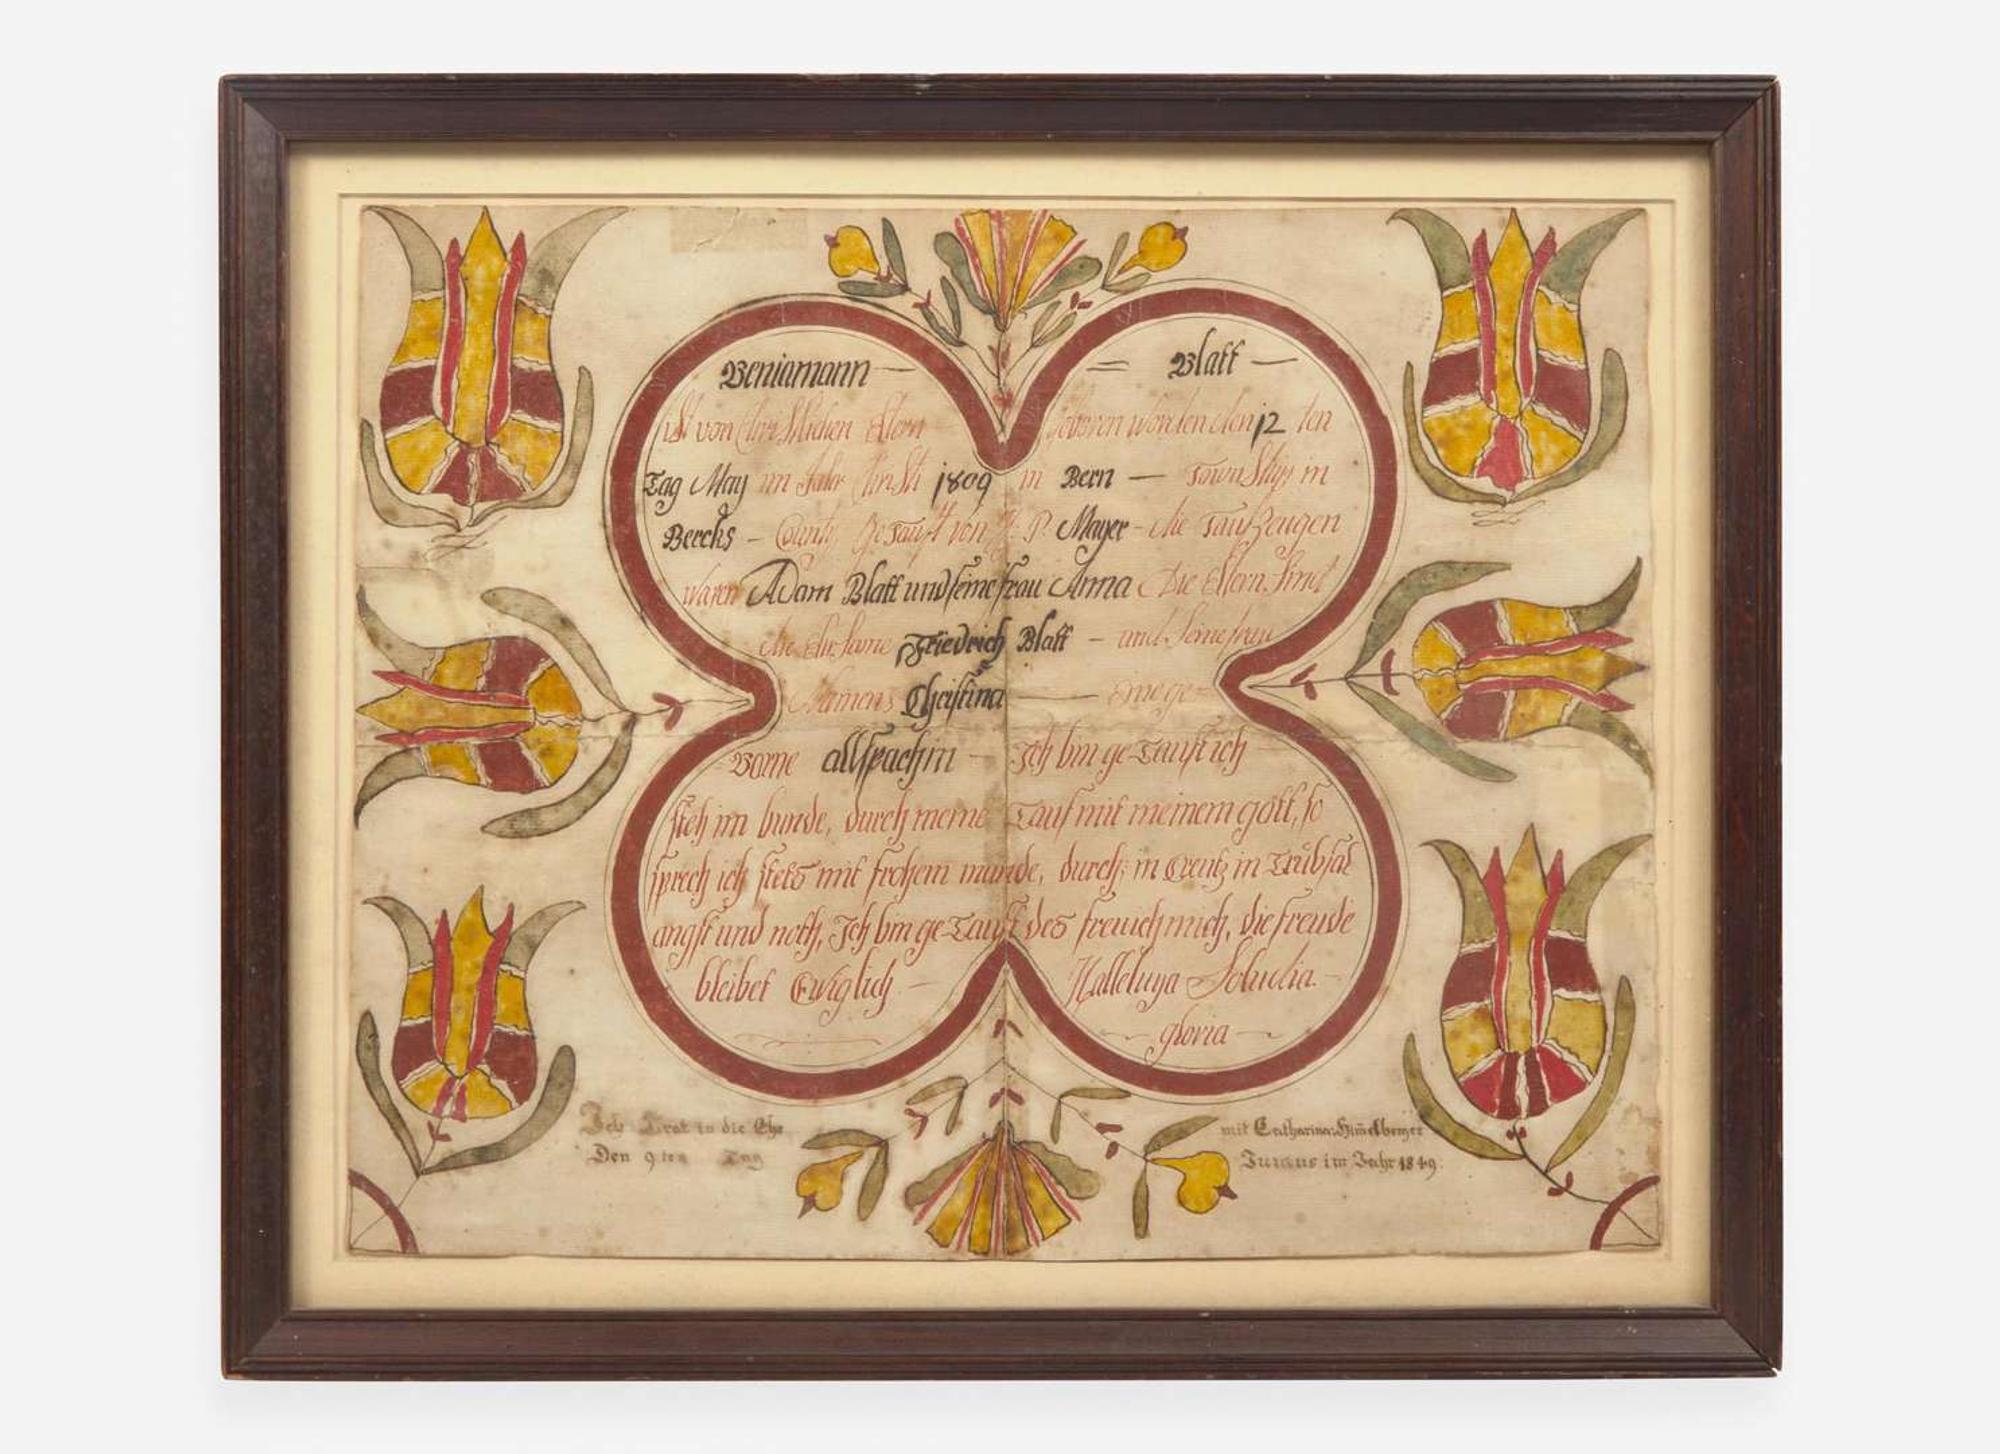 Beniamann — = Blatt —
ist von Christlichen Eltern geboren worden den 12 ten
Tag May im Jahr Christi 1809 in Bern — TownShip in
Bercks — County Getauft von H. P. Mayer - die Taufzeugen
waren Adam Blatt und seine frau Anna Die Eltern. sind
die Ehrsame Friedrich Blatt - und seine frau
Namens Christina — Eine ge-
Borne allspachin — Ich bin getauft ich
steh im bunde, durch meine Tauf mit meinem gott, so
sprech ich stets mit frohem munde, durch; in Creutz in Trübsal
angst und noth, Ich bin getauft des freuich mich, die freude
bleibet Ewiglich — Halleluya -
— gloria —
Ich Trat in die Ehe mit Catharina Him̄elberger
Den 9ten Tag im Jahr 1849.